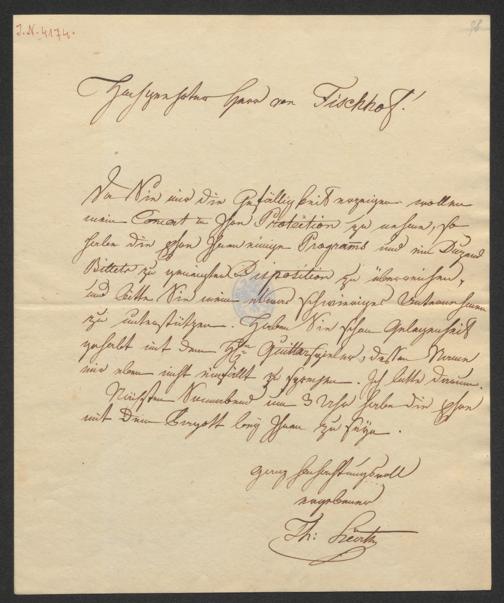 I.N. 4174.
Hochgeehrter Herr von Fischhof!
Da Sie mir die Gefälligkeit erzeigen wollen
mein Concert in Ihre Protection zu nehmen, so
habe ich die Ehre Ihnen einige Programs und ein Duzend
Billete zu geneigter Disposition zu überreichen,
und bitte Sie mein etwas schwieriges Unternehmen
zu unterstützen. Haben Sie schon Gelegenheit
gehabt mit dem Guittarspieler, dessen Name
mir eben nicht einfällt zu sprechen. Ich bitte darum.
Nächsten Sonnabend um 3 Uhr habe die Ehre
mit dem Fagott bey Ihnen zu seyn.
ganz hochachtungsvoll
ergebener
Th: